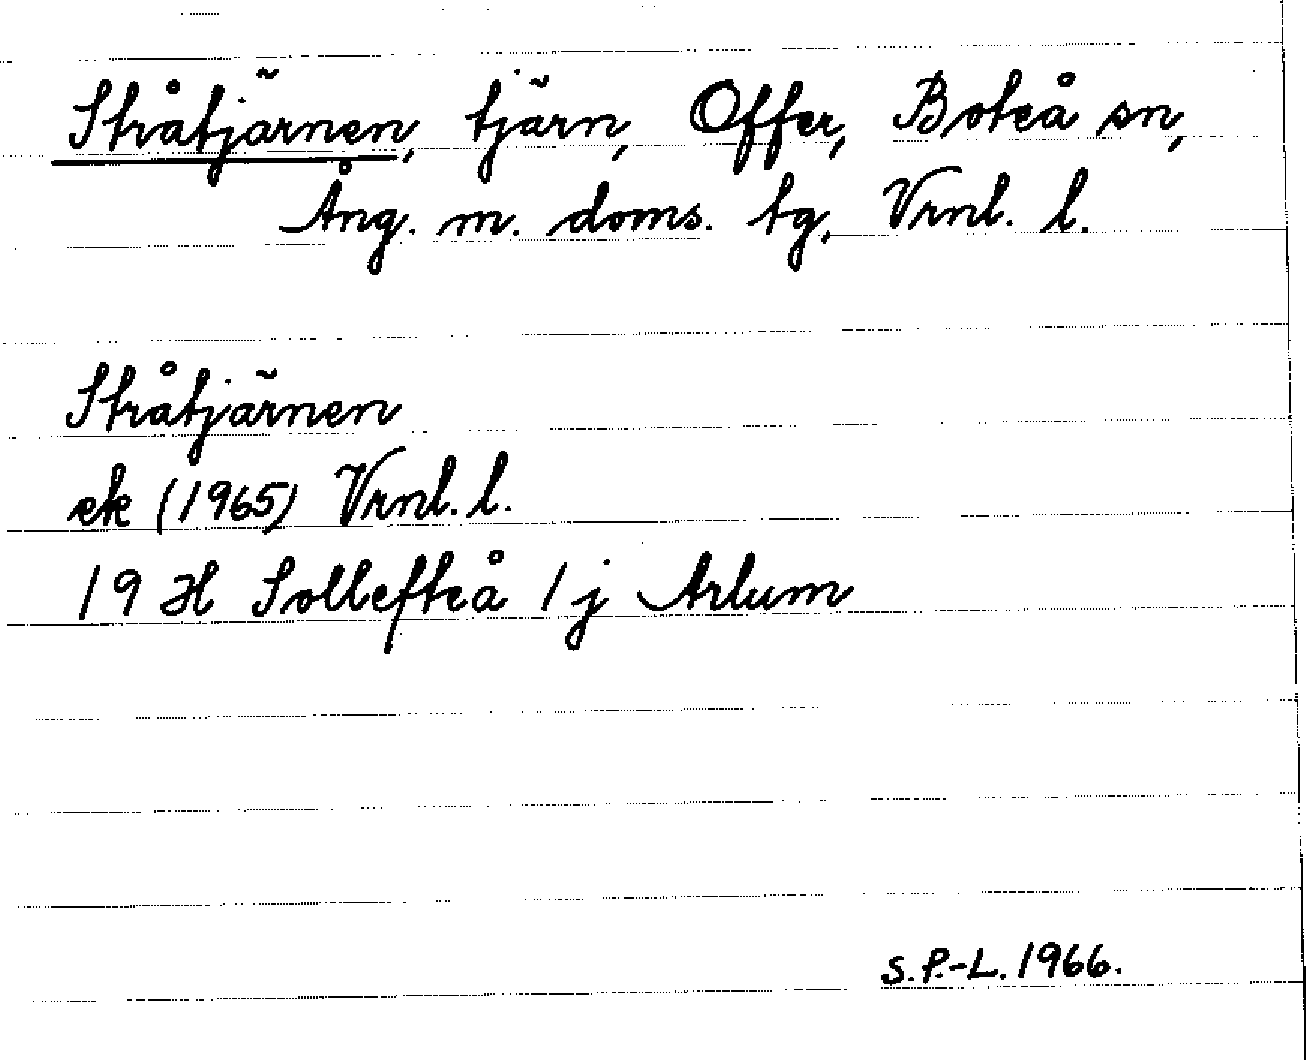 Stråtjärnen, tjärn, Offer, Boteå sn,
Ång. m. doms. tg, Vrnl. l.
Stråtjärnen
ek (1965) Vrnl. l.
19 H Sollefteå 1 j Arlum
S.P.-L. 1966.